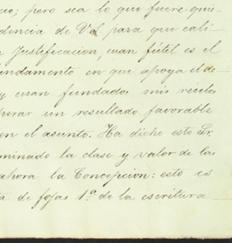 cio; pero sea lo que fuere qui-
dencia de Vd para que cali-
Justificacion, cuan fútil es el
undamento en que apoya el de
y cuan fundados mis recelos
perar un resultado favorable
en el asunto. Ha dicho este Sr.
minado la clase y valor de las
ahora la Concepcion: esto es
de fojas 1ª de la escritura